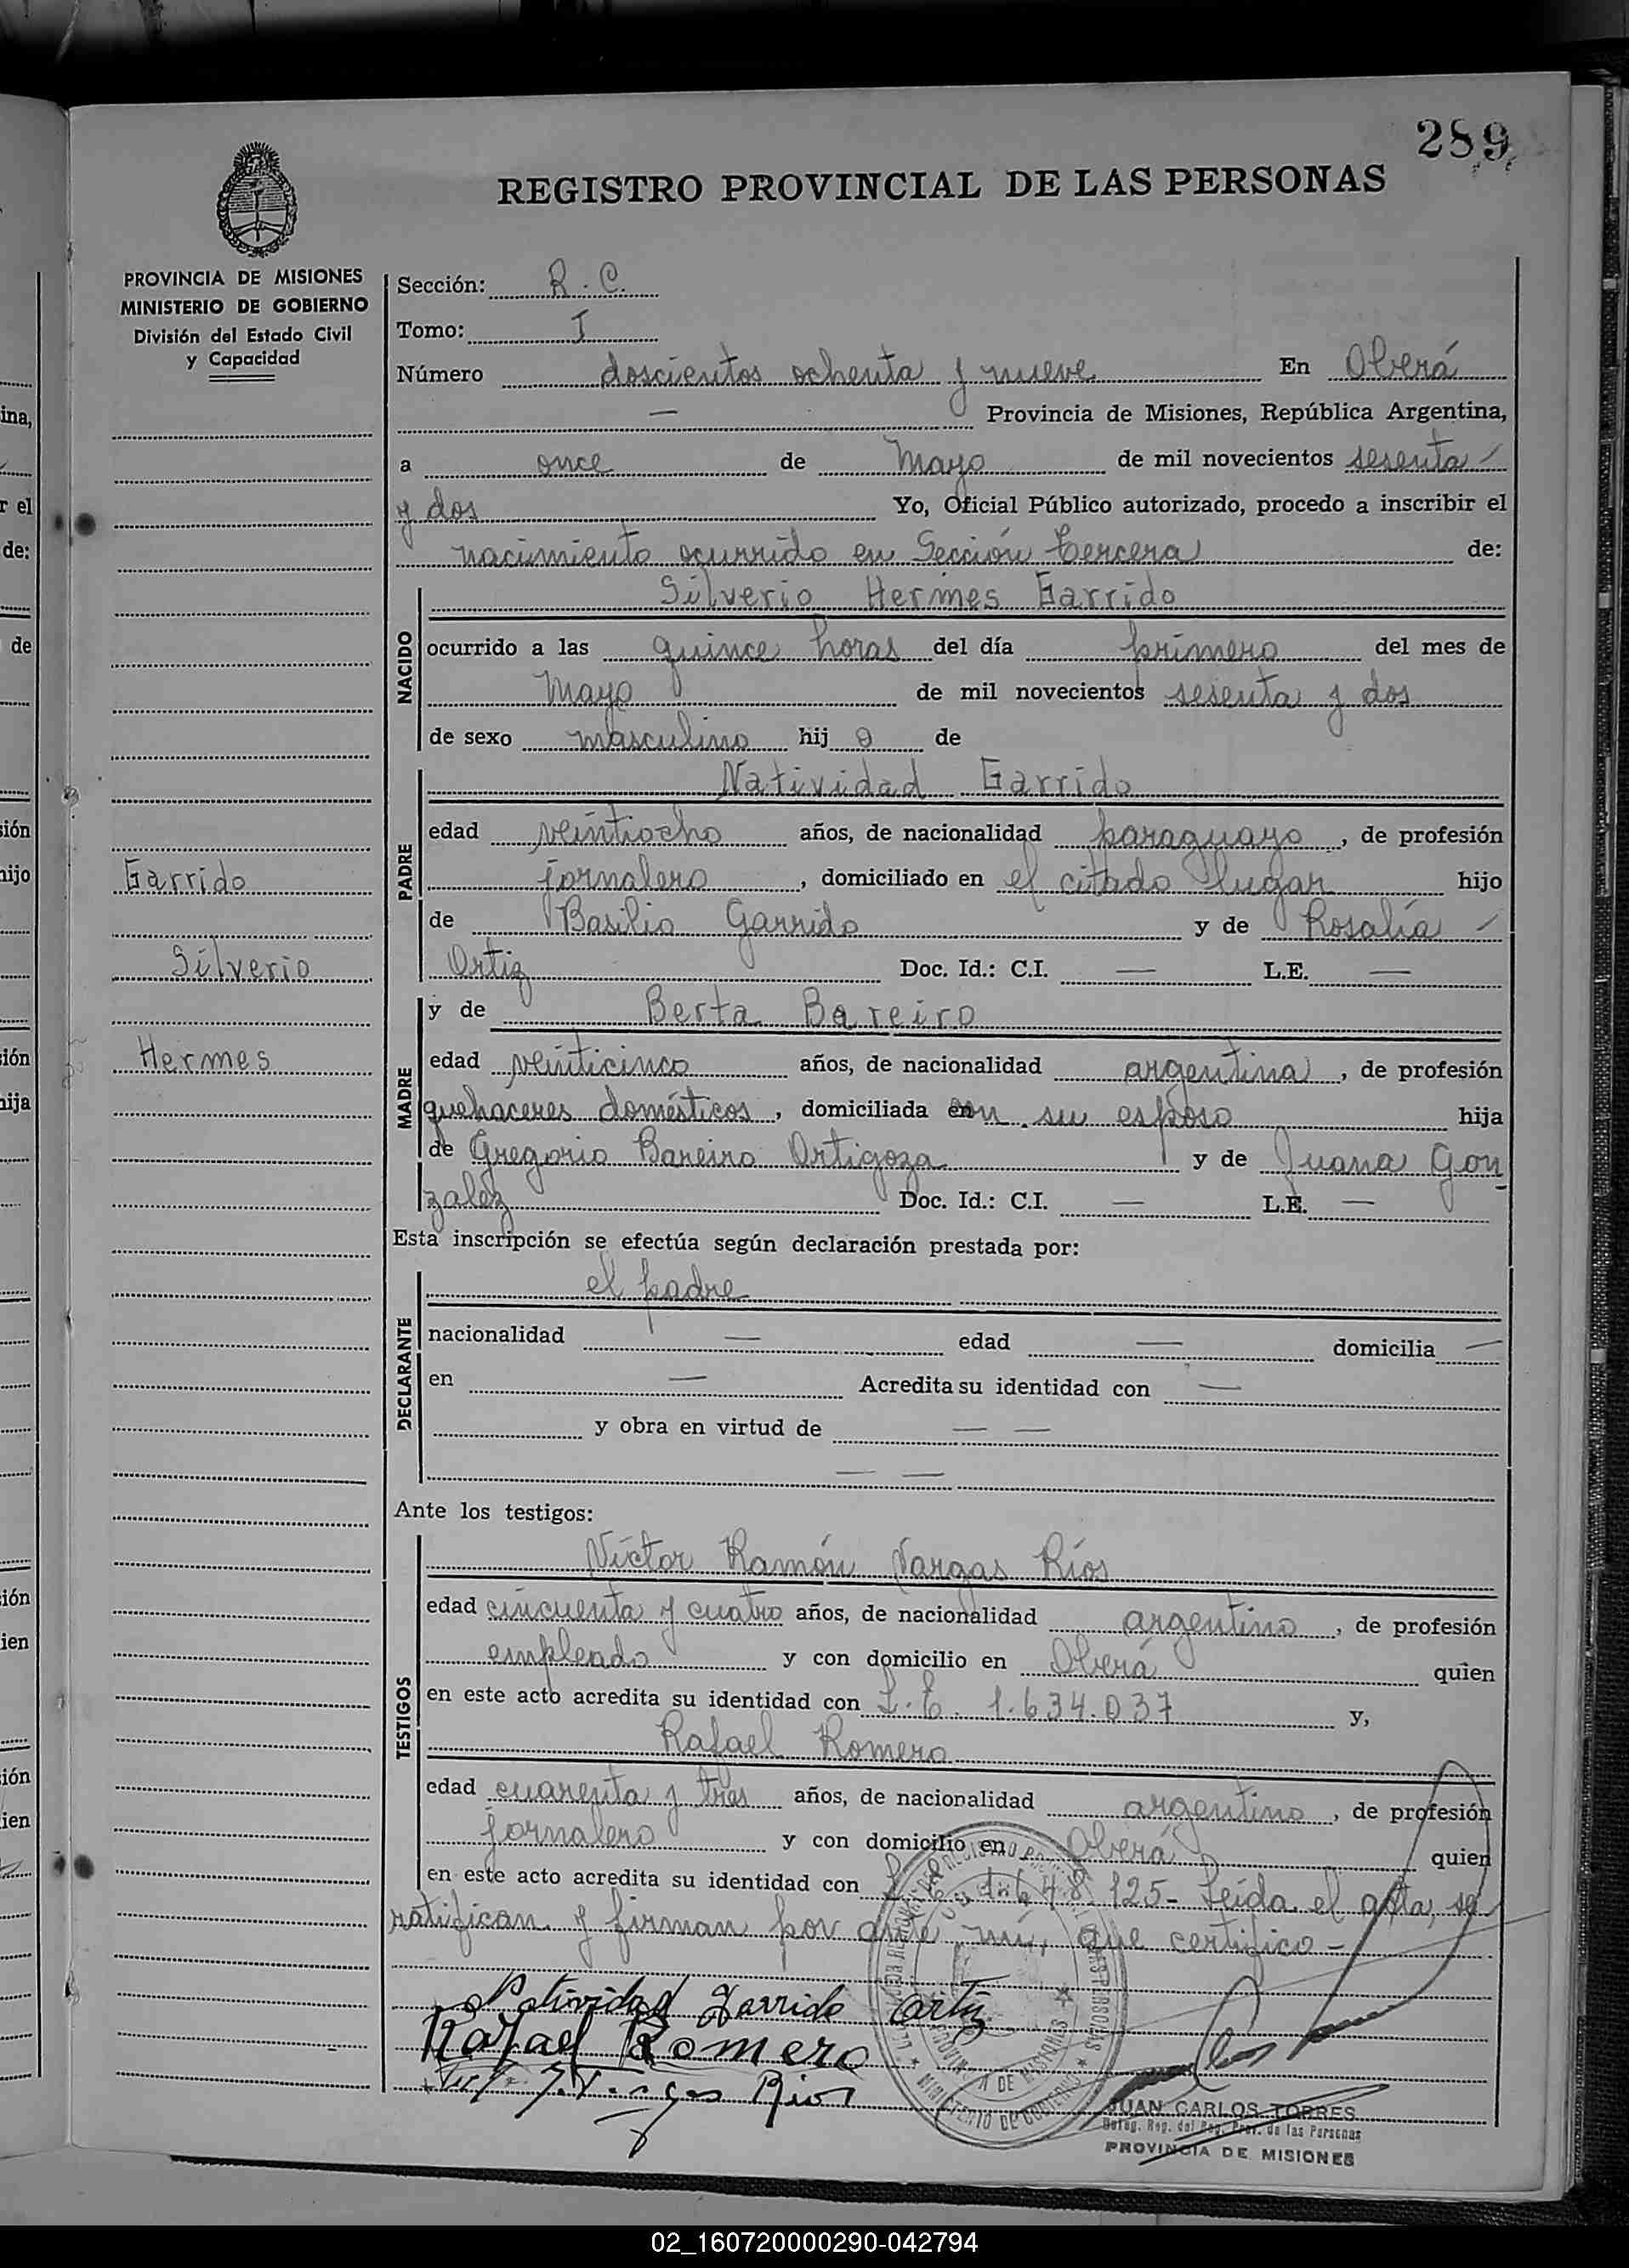 289
REGISTRO PROVINCIAL DE LAS PERSONAS
PROVINCIA DE MISIONES
MINISTERIO DE GOBIERNO
División del Estado Civil
y Capacidad
Sección: R. C.
Tomo: I
Número doscientos ochenta y nueve En Oberá
— Provincia de Misiones, República Argentina,
a once de Mayo de mil novecientos sesenta
y dos Yo, Oficial Público autorizado, procedo a inscribir el
nacimiento ocurrido en Sección tercera de:
Silverio Hermes Garrido
NACIDO
ocurrido a las quince horas del día primero del mes de
Mayo de mil novecientos sesenta y dos
de sexo masculino hij o de
Natividad Garrido
PADRE
edad veintiocho años, de nacionalidad paraguayo, de profesión
jornalero, domiciliado en el citado lugar hijo
de Basilio Garrido y de Rosalía
Ortiz Doc. Id.: C.I. — L.E. —
Garrido
Silverio
Hermes
y de Berta Bareiro
MADRE
edad veinticinco años, de nacionalidad argentina, de profesión
quehaceres domésticos, domiciliada con su esposo hija
de Gregorio Bareiro Ortigoza y de Juana Gon
zalez Doc. Id.: C.I. — L.E. —
Esta inscripción se efectúa según declaración prestada por:
el padre
DECLARANTE
nacionalidad — edad — domicilia —
en — Acredita su identidad con —
y obra en virtud de — —
— —
Ante los testigos:
Víctor Ramón Vargas Ríos
TESTIGOS
edad cincuenta y cuatro años, de nacionalidad argentino, de profesión
empleado y con domicilio en Oberá quien
en este acto acredita su identidad con L.E. 1.634.037 y,
Rafael Romero
edad cuarenta y tres años, de nacionalidad argentino, de profesión
jornalero y con domicilio en Oberá quien
en este acto acredita su identidad con 125- Leída el acta, se
ratifican y firman por ante mí, que certifico -
Natividad Garrido Ortiz
Rafael Romero
Vargas Rios
JUAN CARLOS TORRES
Deleg. Reg. del Reg. Prov. de las Personas
PROVINCIA DE MISIONES
02_160720000290-042794